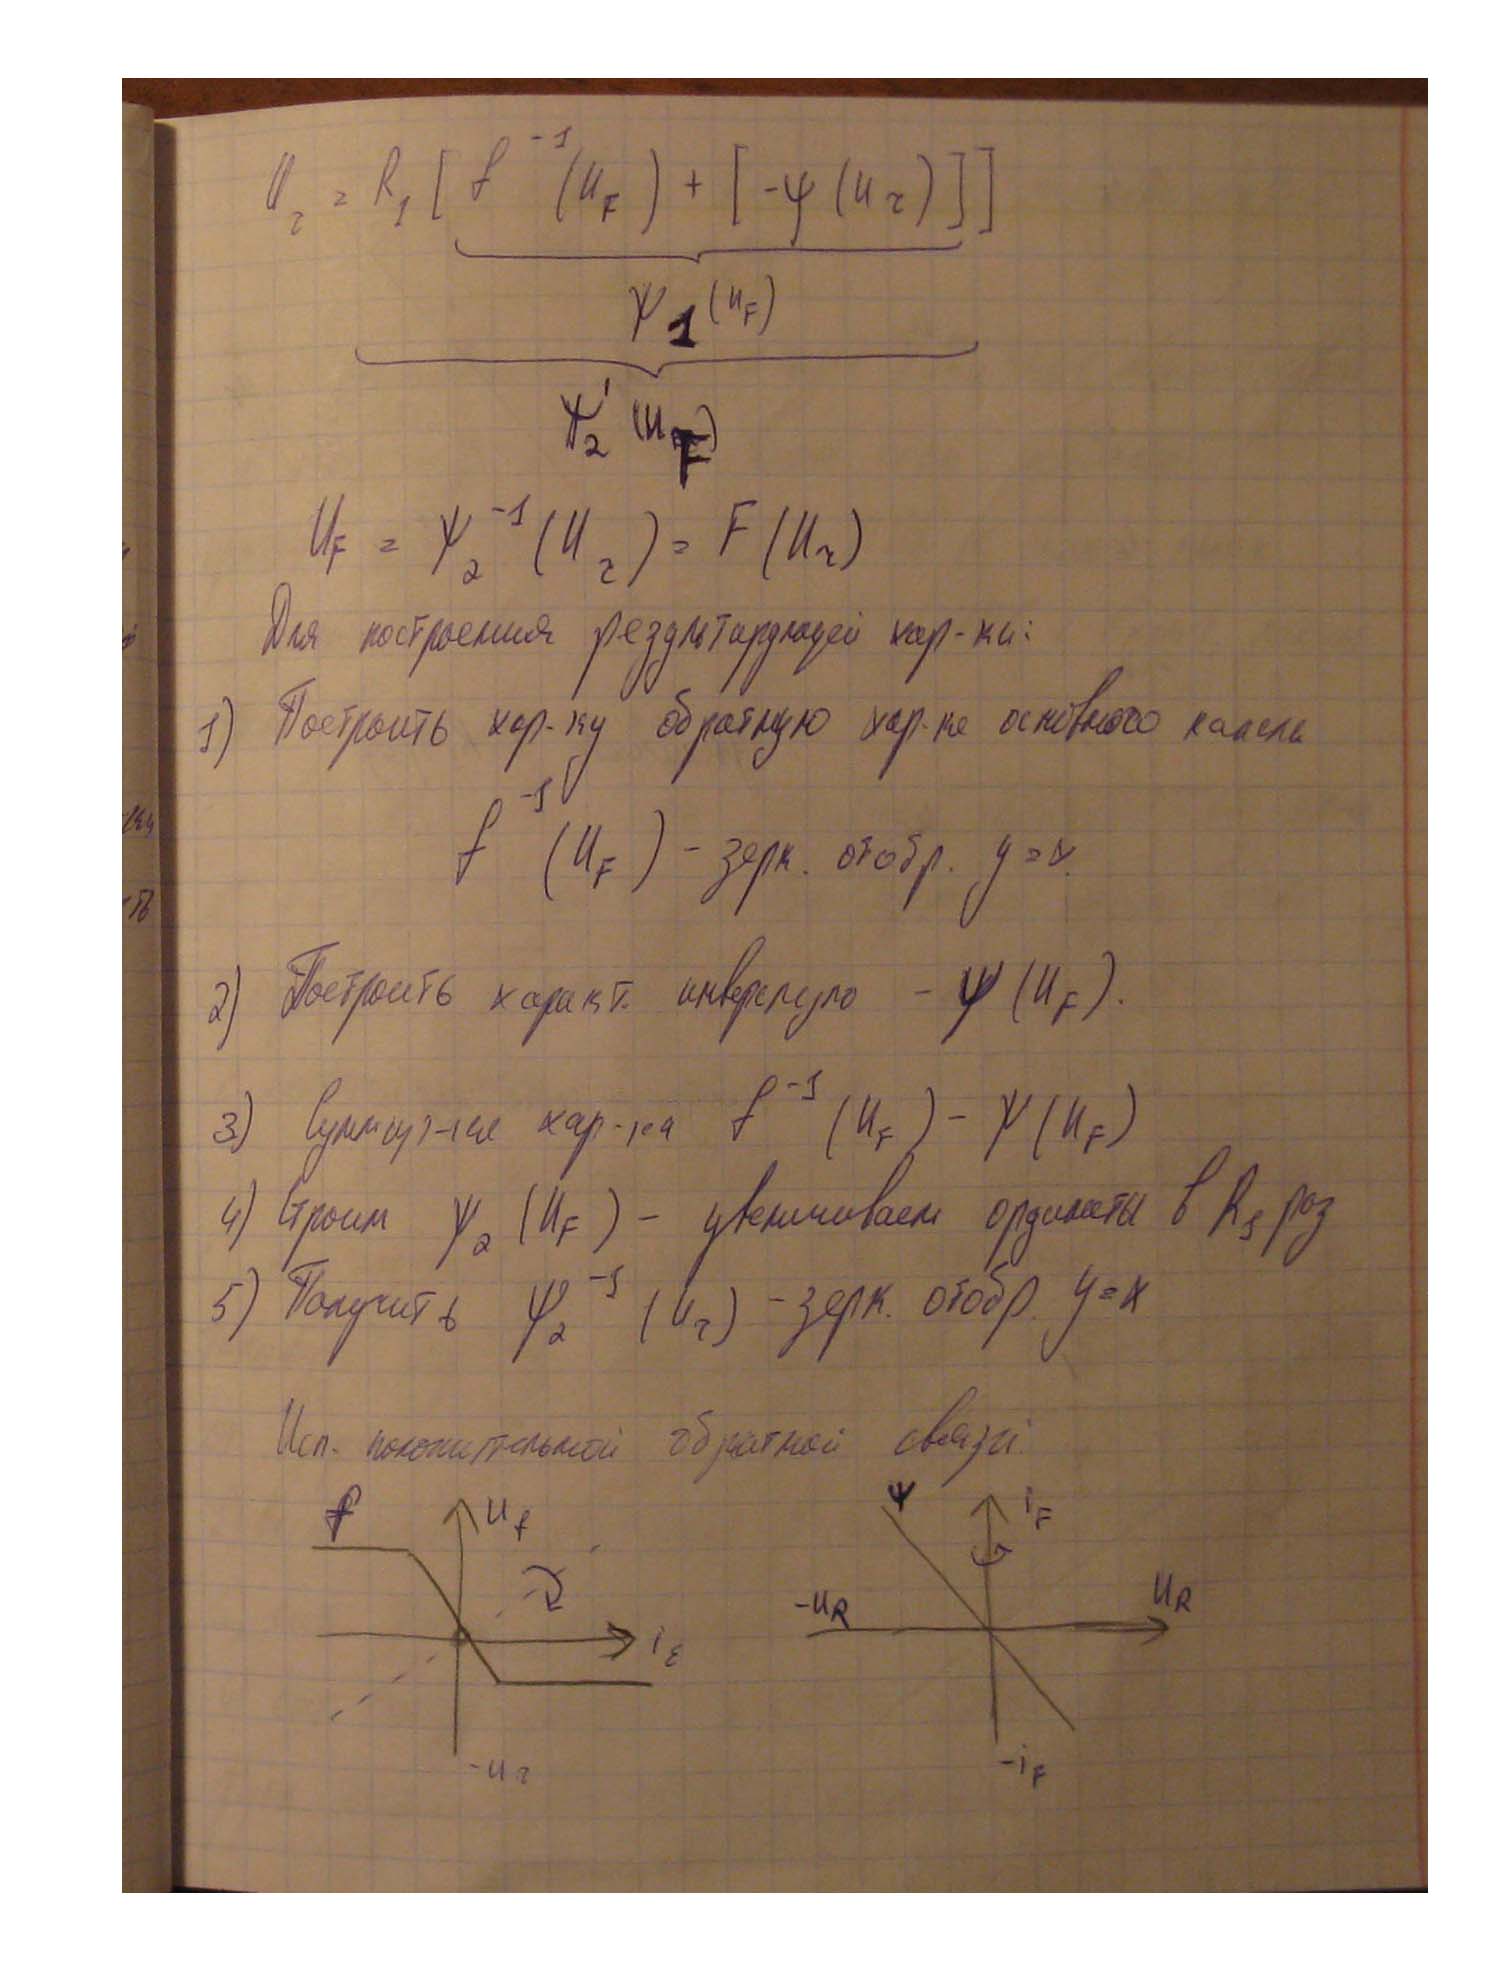 U₂ = R₁ [ f⁻¹ (U_F) + [ -ψ (U₂) ] ]
ψ₁ (U_F)
ψ₂' (U_F)
U_F = ψ₂⁻¹ (U₂) = F (U₂)
Для построения результирующей хар-ки:
1) Построить хар-ку обратную хар-ке основного канала
f⁻¹ (U_F) - зерк. отобр. y = x.
2) Построить характ. инверсную - ψ (U_F).
3) хар-ка f⁻¹ (U_F) - ψ (U_F)
4) Строим ψ₂ (U_F) - увеличиваем ординаты в R₁ раз
5) Получить ψ₂⁻¹ (U₂) - зерк. отобр. y = x
Исп. положительной обратной связи.
f U_f
ψ i_F
-U_R U_R
i_ε
-U₂
-i_F